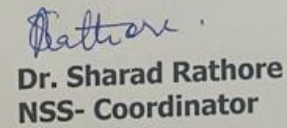 Rathore.
Dr. Sharad Rathore
NSS- Coordinator